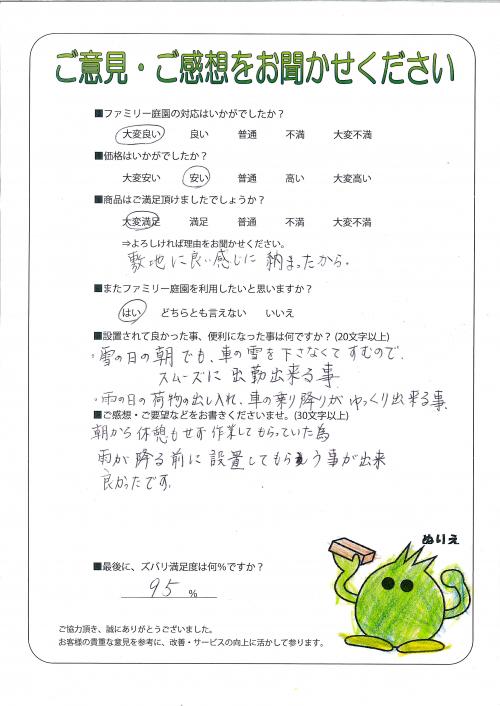 ご意見・ご感想をお聞かせください
■ファミリー庭園の対応はいかがでしたか？
大変良い 良い 普通 不満 大変不満
■価格はいかがでしたか？
大変安い 安い 普通 高い 大変高い
■商品はご満足頂けましたでしょうか？
大変満足 満足 普通 不満 大変不満
⇒よろしければ理由をお聞かせください。
敷地に良い感じに納まったから。
■またファミリー庭園を利用したいと思いますか？
はい どちらとも言えない いいえ
■設置されて良かった事、便利になった事は何ですか？(20文字以上)
・雪の日の朝でも、車の雪を下さなくてすむので、
スムーズに出勤出来る事
・雨の日の荷物の出し入れ、車の乗り降りがゆっくり出来る事。
■ご感想・ご要望などをお書きくださいませ。(30文字以上)
朝から休憩もせず作業してもらっていた為
雨が降る前に設置してもらう事が出来
良かったです。
ぬりえ
■最後に、ズバリ満足度は何％ですか？
95 %
ご協力頂き、誠にありがとうございました。
お客様の貴重な意見を参考に、改善・サービスの向上に活かして参ります。